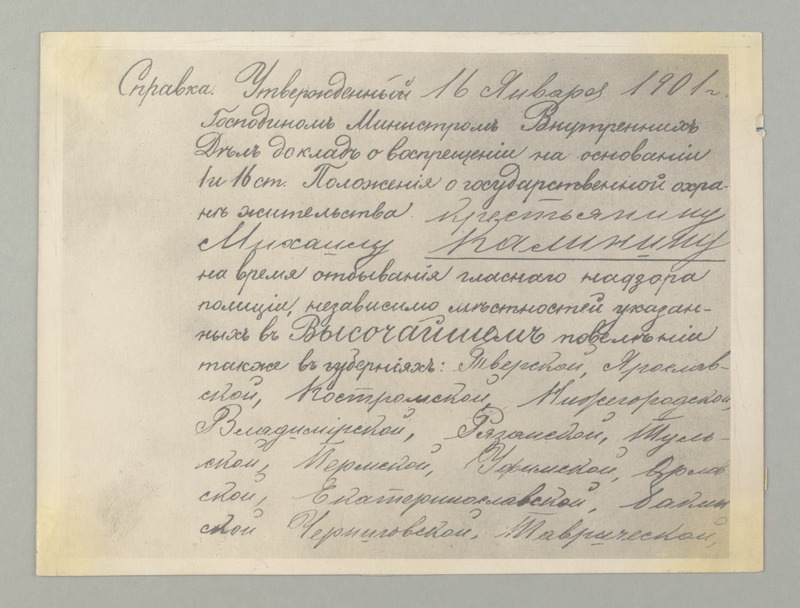 Справка. Утвержденный 16 Января 1901 г.
Господиномъ Министромъ Внутреннихъ
Дѣлъ докладъ о воспрещеніи на основаніи
1 и 16 ст. Положенія о государственной охра-
нѣ жительства крестьянину
Михаилу Калинину
на время отбыванія гласнаго надзора
полиціи, независимо мѣстностей указан-
ныхъ въ Высочайшемъ повелѣніи
также въ губерніяхъ: Тверской, Ярослав-
ской, Костромской, Нижегородской,
Владимірской, Рязанской, Туль-
ской, Пермской, Уфимской, Орлов
ской, Екатеринославской, Бакин
ской Черниговской, Таврической,